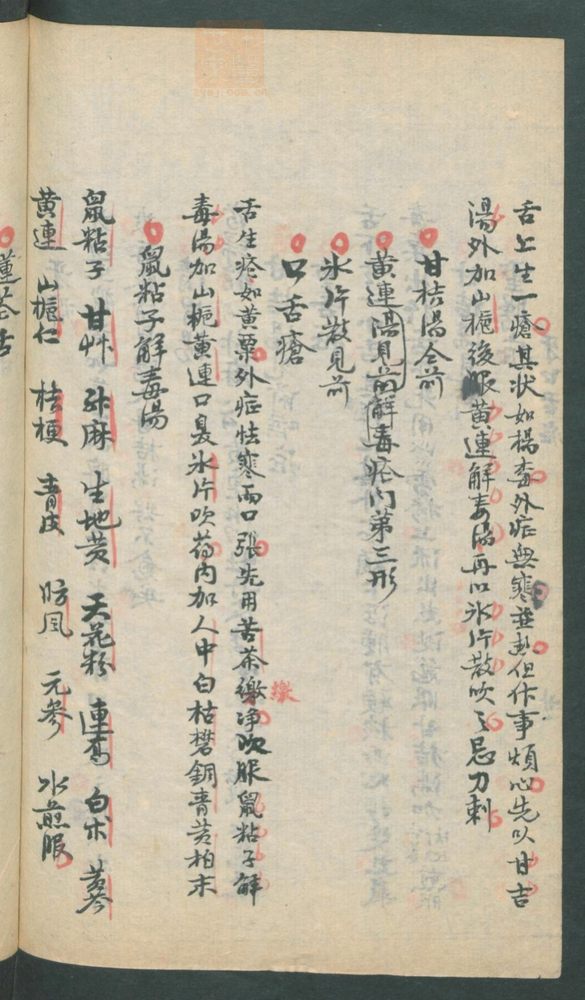 舌上生一瘡其状如楊梅外症無寒無熱但作事煩心先以甘吉
湯外加山梔後服黄連解毒湯再以氷片散吹之忌刀刺
甘桔湯仝前
黄連湯見前解毒瘡门第三形
氷片散見前
口舌瘡
舌生瘡如黄粟外症怯寒而口張先用苦茶繳净次服鼠粘子解
繳
毒湯加山梔黄連口臭氷片吹药内加人中白枯礬銅青黄柏末
鼠粘子解毒湯
鼠粘子 甘艸 升麻 生地黄 天花粉 連翹 白朮 黄芩
黄連 山梔仁 桔梗 青皮 防風 元参 水煎服